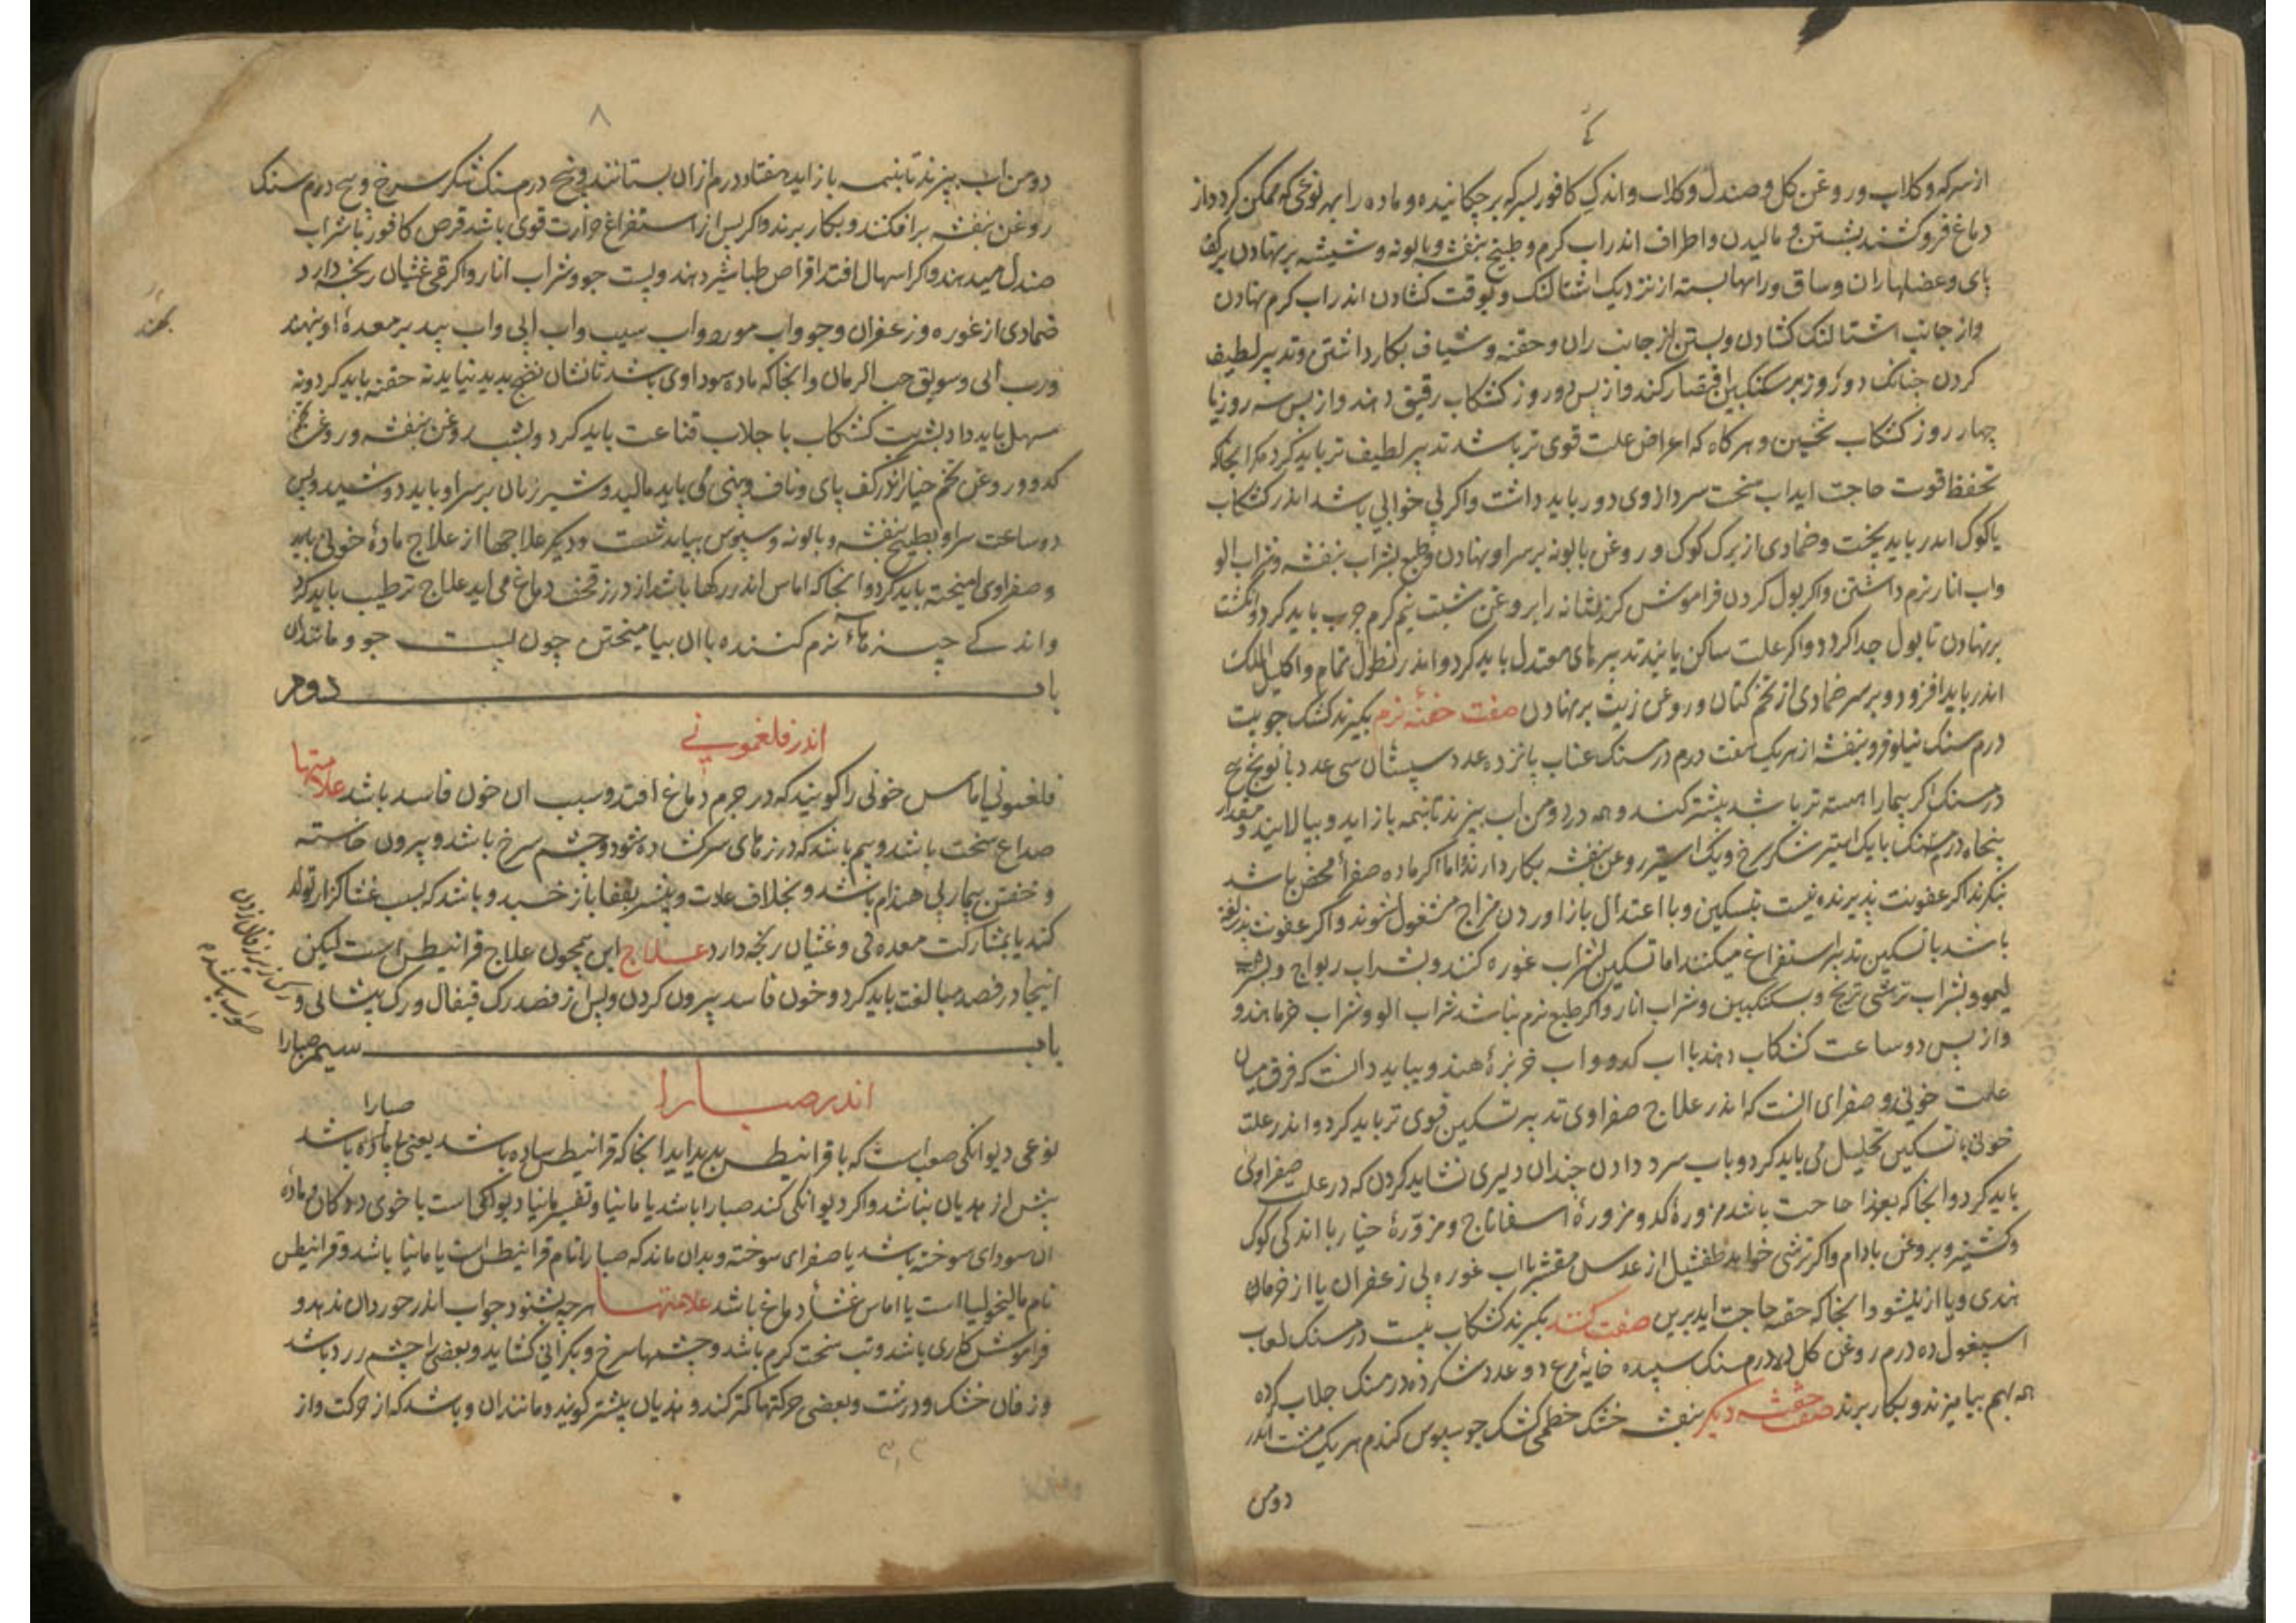 از سرکه و کلاب و روغن کل و صندل و کلاب و اندکی کافور بسرکه بر چکانیده و ماده را بهر نوعی که ممکن کردد از
دماغ فرو کشند بشستن و مالیدن و اطراف اندر اب کرم و طبیخ بنفشه و بابونه و شیشه بر نهادن بر کف
پای و عضلهاء ران و ساق و رانها بسته از نزدیک اشتالنک و بوقت کشادن اندر اب کرم نهادن
و از جانب اشتالنک کشادن و بستن از جانب ران و حقنه و شیاف بکار داشتن و تدبیر لطیف
کردن جنانک دو روز بر سکنکبین اقتصار کند و از پس دو روز کشکاب رقیق دهند و از پس سه روز یا
چهار روز کشکاب نخستین و هر کاه که اعراض علت قوی تر باشد تدبیر لطیف تر باید کرد مکر انجا که
تحفظ قوت حاجت اید اب سخت سرد از وی دور باید داشت و اکر بی خوابی باشد اندر کشکاب
یا کوک اندر باید پخت و ضمادی از برک کوک و روغن بابونه بر سر او نهادن و طبع بشراب بنفشه و شراب الو
و اب انار نرم داشتن و اکر بول کردن فراموش کند مثانه را بروغن شبت نیم کرم جرب باید کرد و انکشت
بر نهادن تا بول جدا کردد و اکر علت ساکن یابند تدبیرهای معتدل باید کرد و اندر نطول نمام و اکلیل الملک
اندر باید افزود و بر سر ضمادی از تخم کتان و روغن زیت بر نهادن صفت حقنه نرم بکیرند کشک جو بیست
درم سنک نیلوفر و بنفشه از هر یک هفت درم درسنک عناب پانزده عدد سپستان سی عدد بابونج پنج
درمسنک اکر بیمار اهسته تر باشد بیشتر کنند و همه در دو من اب بپزند تا بنیمه باز اید و بپالایند و مقدار
پنجاه درم سنک با یک استیر شکر سرخ و یک استیر روغن بنفشه بکار دارند اما اکر ماده صفرا محض باشد
بنکرند اکر عفونت پذیرنده نیست بتسکین و با اعتدال باز اوردن مزاج مشغول شوند و اکر عفونت پذیرفته
باشد با تسکین تدبیر استفراغ میکنند اما تسکین بشراب غوره کنند و بشراب ریواج و بشراب
لیمو و بشراب ترشی ترنج و بسکنکبین و شراب انار و اکر طبع نرم نباشد شراب الو و شراب خرما هندو
و از پس دو ساعت کشکاب دهند با اب کدو و اب خربزه هندو بباید دانست که فرق میان
علت خونی و صفرای انست که اندر علاج صفراوی تدبیر تسکین قوی تر باید کرد و اندر علت
خونی با تسکین تحلیل می باید کرد و باب سرد دادن جندان دلیری نشاید کردن که در علت صفراوی
باید کرد و انجا که بغذا حاجت باشد مزوره کدو مزوره اسفاناج و مزوره خیار با اندکی کوک
و کشنیز و بروغن بادام و اکر ترشی خواهد طفشیل از عدس مقشر با اب غوره بی زعفران یا از خرمای
هندی و یا از نیشو و انجا که حقنه حاجت اید برین صفت کنند بکیرند کشکاب بیست درمسنک لعاب
اسپغول ده درم روغن کل ده درم سنک سپیده خایه مرغ دو عدد شکر ده درمسنک جلاب کرده
همه بهم بیامیزند و بکار برند صفت حقنه دیکر بنفشه خشک خطمی کشک جو سپوس کندم هر یک مشت اندر
دو من
۸
دو من اب بپزند تا بنیمه باز اید هفتاد درم از ان بستانند و پنج درم سنک شکر سرخ و پنج درم سنک
روغن بنفشه بر افکنند و بکار برند و اکر پس از استفراغ حرارت قوی باشد قرص کافور با شراب
صندل میدهند و اکر اسهال افتد اقراص طباشیر دهند و پست جو و شراب انار و اکر قی غثیان رنجه دارد
ضمادی از غوره و زعفران و جو و اب مورد و اب سیب و اب ابی و اب بید بر معدهٔ او نهند
و رب ابی و سویق حب الرمان و انجا که ماده سوداوی باشد تا نشان نضج پدید نیاید نه حقنه باید کرد و نه
مسهل باید داد بشربت کشکاب با جلاب قناعت باید کرد و لبشب روغن بنفشه و روغن تخم
کدو و روغن تخم خیار اندر کف پای و ناف و بینی می باید مالید و شیر زنان بر سر او باید دوشید و پس
دو ساعت سر او بطبیخ بنفشه و بابونه و سپوس بباید شست و دیکر علاجها از علاج مادهٔ خونی باید
و صفراوی امیخته باید کرد و انجا که اماس اندر رکها باشد از درز قحف دماغ می اید علاج ترطیب باید کرد
و اندکی چیزهاء نرم کننده با ان بیامیختن چون پست جو و مانندان
باب دوم
اندر فلغمونی
فلغمونی اماس خونی را کویند که در جرم دماغ افتد و سبب ان خون فاسد باشد علامتها
صداع سخت باشد و بیم باشد که درزهای سر کشاده شود و چشم سرخ باشد و بیرون خاسته
و خفتن بیمار بی هندام باشد و بخلاف عادت و بیشتر بقفا باز خسبد و باشد که بسبب غشا کزار تولد
کند یا بمشارکت معده قی و غثیان رنجه دارد علاج این همچون علاج قرانیطس است لیکن
اینجا در فصد مبالغت باید کرد و خون فاسد بیرون کردن و پس از فصد رک قیفال و رک پیشانی و
باب سیم صبارا
اندر صبارا
صبارا
نوعی دیوانکی صعب است که با قرانیطس پدید اید انجا که قرانیطس ساده باشد یعنی با ماده باشد
بیش از هذیان نباشد و اکر دیوانکی کند صبارا باشد یا مانیا و تفسیر مانیا دیوانکی است با خوی ددکان و مادهٔ
ان سودای سوخته باشد یا صفرای سوخته و بدان ماند که صبارا نام قرانیطس است یا مانیا باشد و قرانیطس
نام مالیخولیا است یا اماس غشاء دماغ باشد علامتها هرچه بشنود جواب اندر خور دان ندهد و
فراموش کاری باشد و تب سخت کرم باشد و چشمها سرخ و بکرانی کشاید و بعضی را چشم زرد باشد
و زفان خشک و درشت و بعضی حرکتها کمتر کند و هذیان بیشتر کویند و مانندان و باشد که از حرکت و از